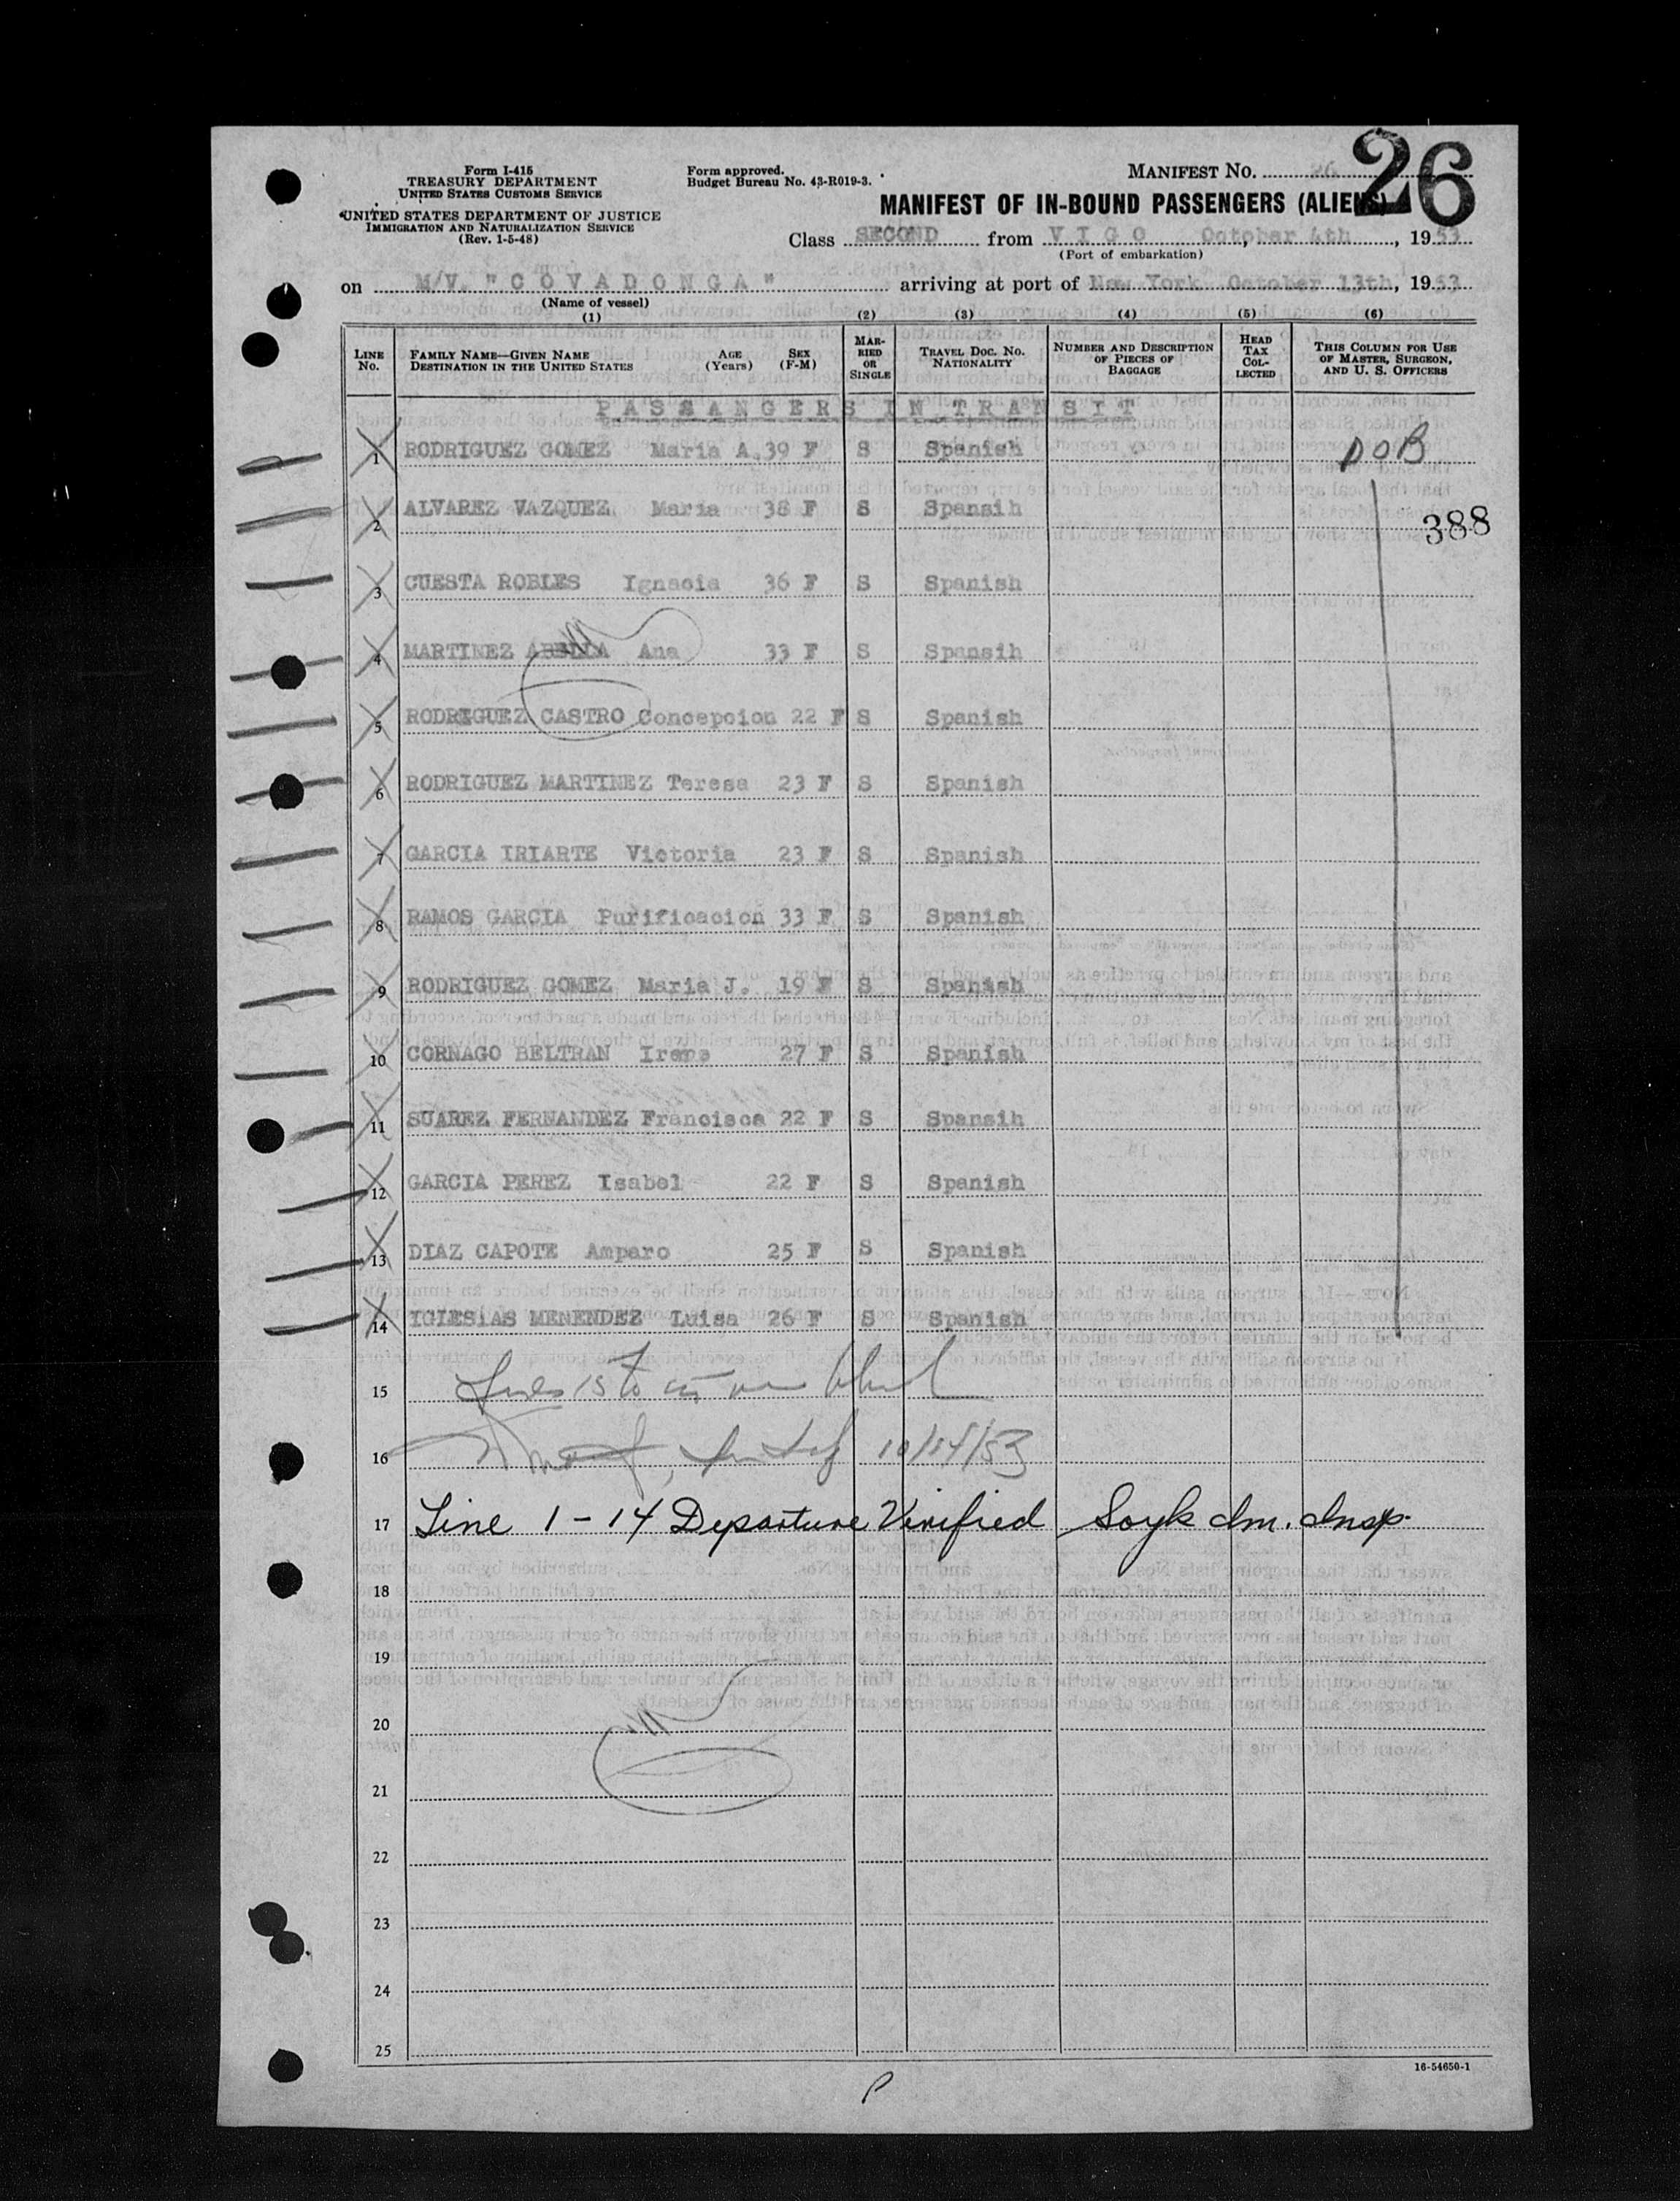 26
Form I-415
TREASURY DEPARTMENT
UNITED STATES CUSTOMS SERVICE
UNITED STATES DEPARTMENT OF JUSTICE
IMMIGRATION AND NATURALIZATION SERVICE
(Rev. 1-5-48)
Form approved.
Budget Bureau No. 43-R019-3.
MANIFEST No. 26
MANIFEST OF IN-BOUND PASSENGERS (ALIENS)
Class SECOND from V I G O October 4th, 1953
(Port of embarkation)
on M/V. "C O V A D O N G A" arriving at port of New York October 13th, 1953
(Name of vessel)
(1) (2) (3) (4) (5) (6)
LINE No. FAMILY NAME—GIVEN NAME DESTINATION IN THE UNITED STATES AGE (Years) SEX (F-M) MARRIED OR SINGLE TRAVEL DOC. NO. NATIONALITY NUMBER AND DESCRIPTION OF PIECES OF BAGGAGE HEAD TAX COLLECTED THIS COLUMN FOR USE OF MASTER, SURGEON, AND U. S. OFFICERS
P A S S A N G E R S I N T R A N S I T
1 RODRIGUEZ GOMEZ Maria A. 39 F S Spanish DOB
2 ALVAREZ VAZQUEZ Maria 38 F S Spansih 388
3 CUESTA ROBLES Ignacia 36 F S Spanish
4 MARTINEZ ABELLA Ana 33 F S Spansih
5 RODRIGUEZ CASTRO Concepcion 22 F S Spanish
6 RODRIGUEZ MARTINEZ Teresa 23 F S Spanish
7 GARCIA IRIARTE Victoria 23 F S Spanish
8 RAMOS GARCIA Purificacion 33 F S Spanish
9 RODRIGUEZ GOMEZ Maria J. 19 F S Spanish
10 CORNAGO BELTRAN Irene 27 F S Spanish
11 SUAREZ FERNANDEZ Francisca 22 F S Spansih
12 GARCIA PEREZ Isabel 22 F S Spanish
13 DIAZ CAPOTE Amparo 25 F S Spanish
14 IGLESIAS MENENDEZ Luisa 26 F S Spanish
15 Lines 15 to
16 10/14/53
17 Line 1-14 Departure Verified Soyk Im. Insp.
18
19
20
21
22
23
24
25
16-54650-1
P